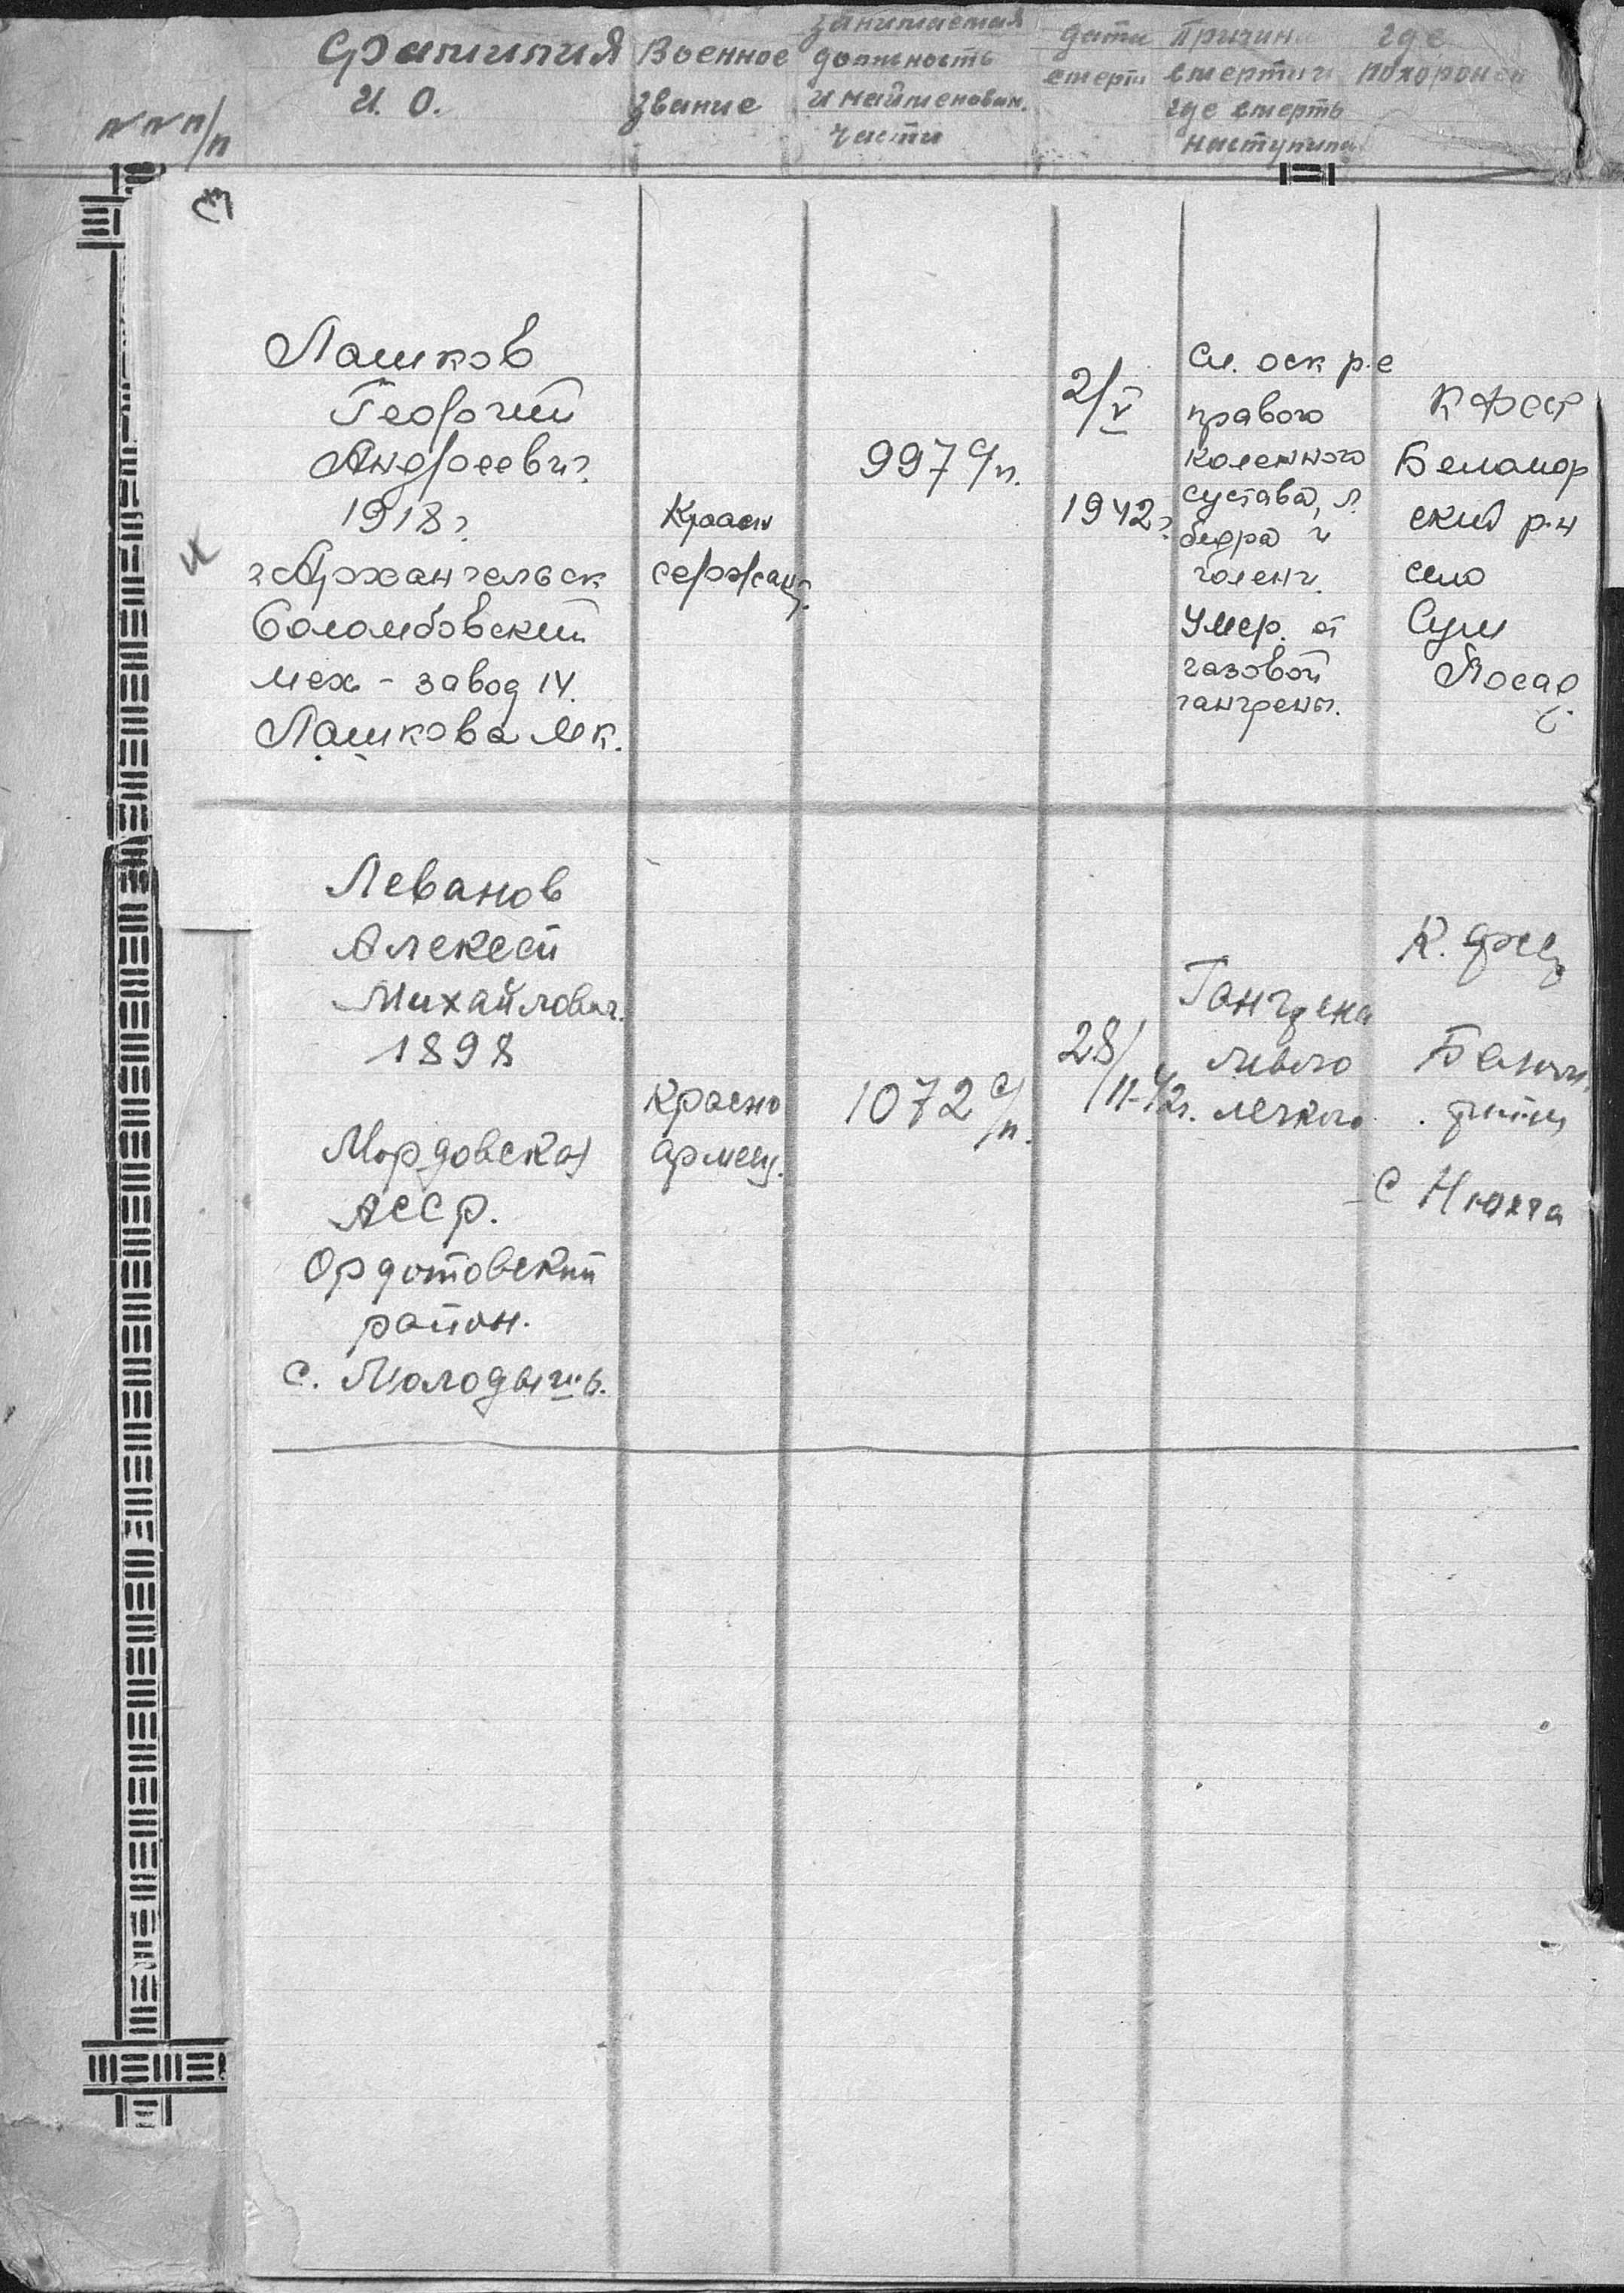 №№ п/п
Фамилия
И. О.
Военное
звание
занимаемая
должность
и наименован.
части
дата
смерти
Причина
смерти и
где смерть
наступила
где
похоронен
Лашков
Георгий
Андреевич
1918 г.
г Архангельск
Соломбовский
мех - завод 14.
Лашкова М к.
Красн
сержант.
997 с/п.
2/V
1942 г
Сл. оск р-е
правого
коленного
сустава, л.
бедра и
голени.
Умер. от
газовой
гангрены.
К Ф ССР
Беломор
ский р-н
село
Сум
Посад
Леванов
Алексей
Михайлович.
1898
Мордовская
АССР.
Ордатовский
район.
с. Молодынь.
Красно
армеец.
1072 с/п.
28/II-42г.
Гангрена
левого
легкого
К.
с Нюхча